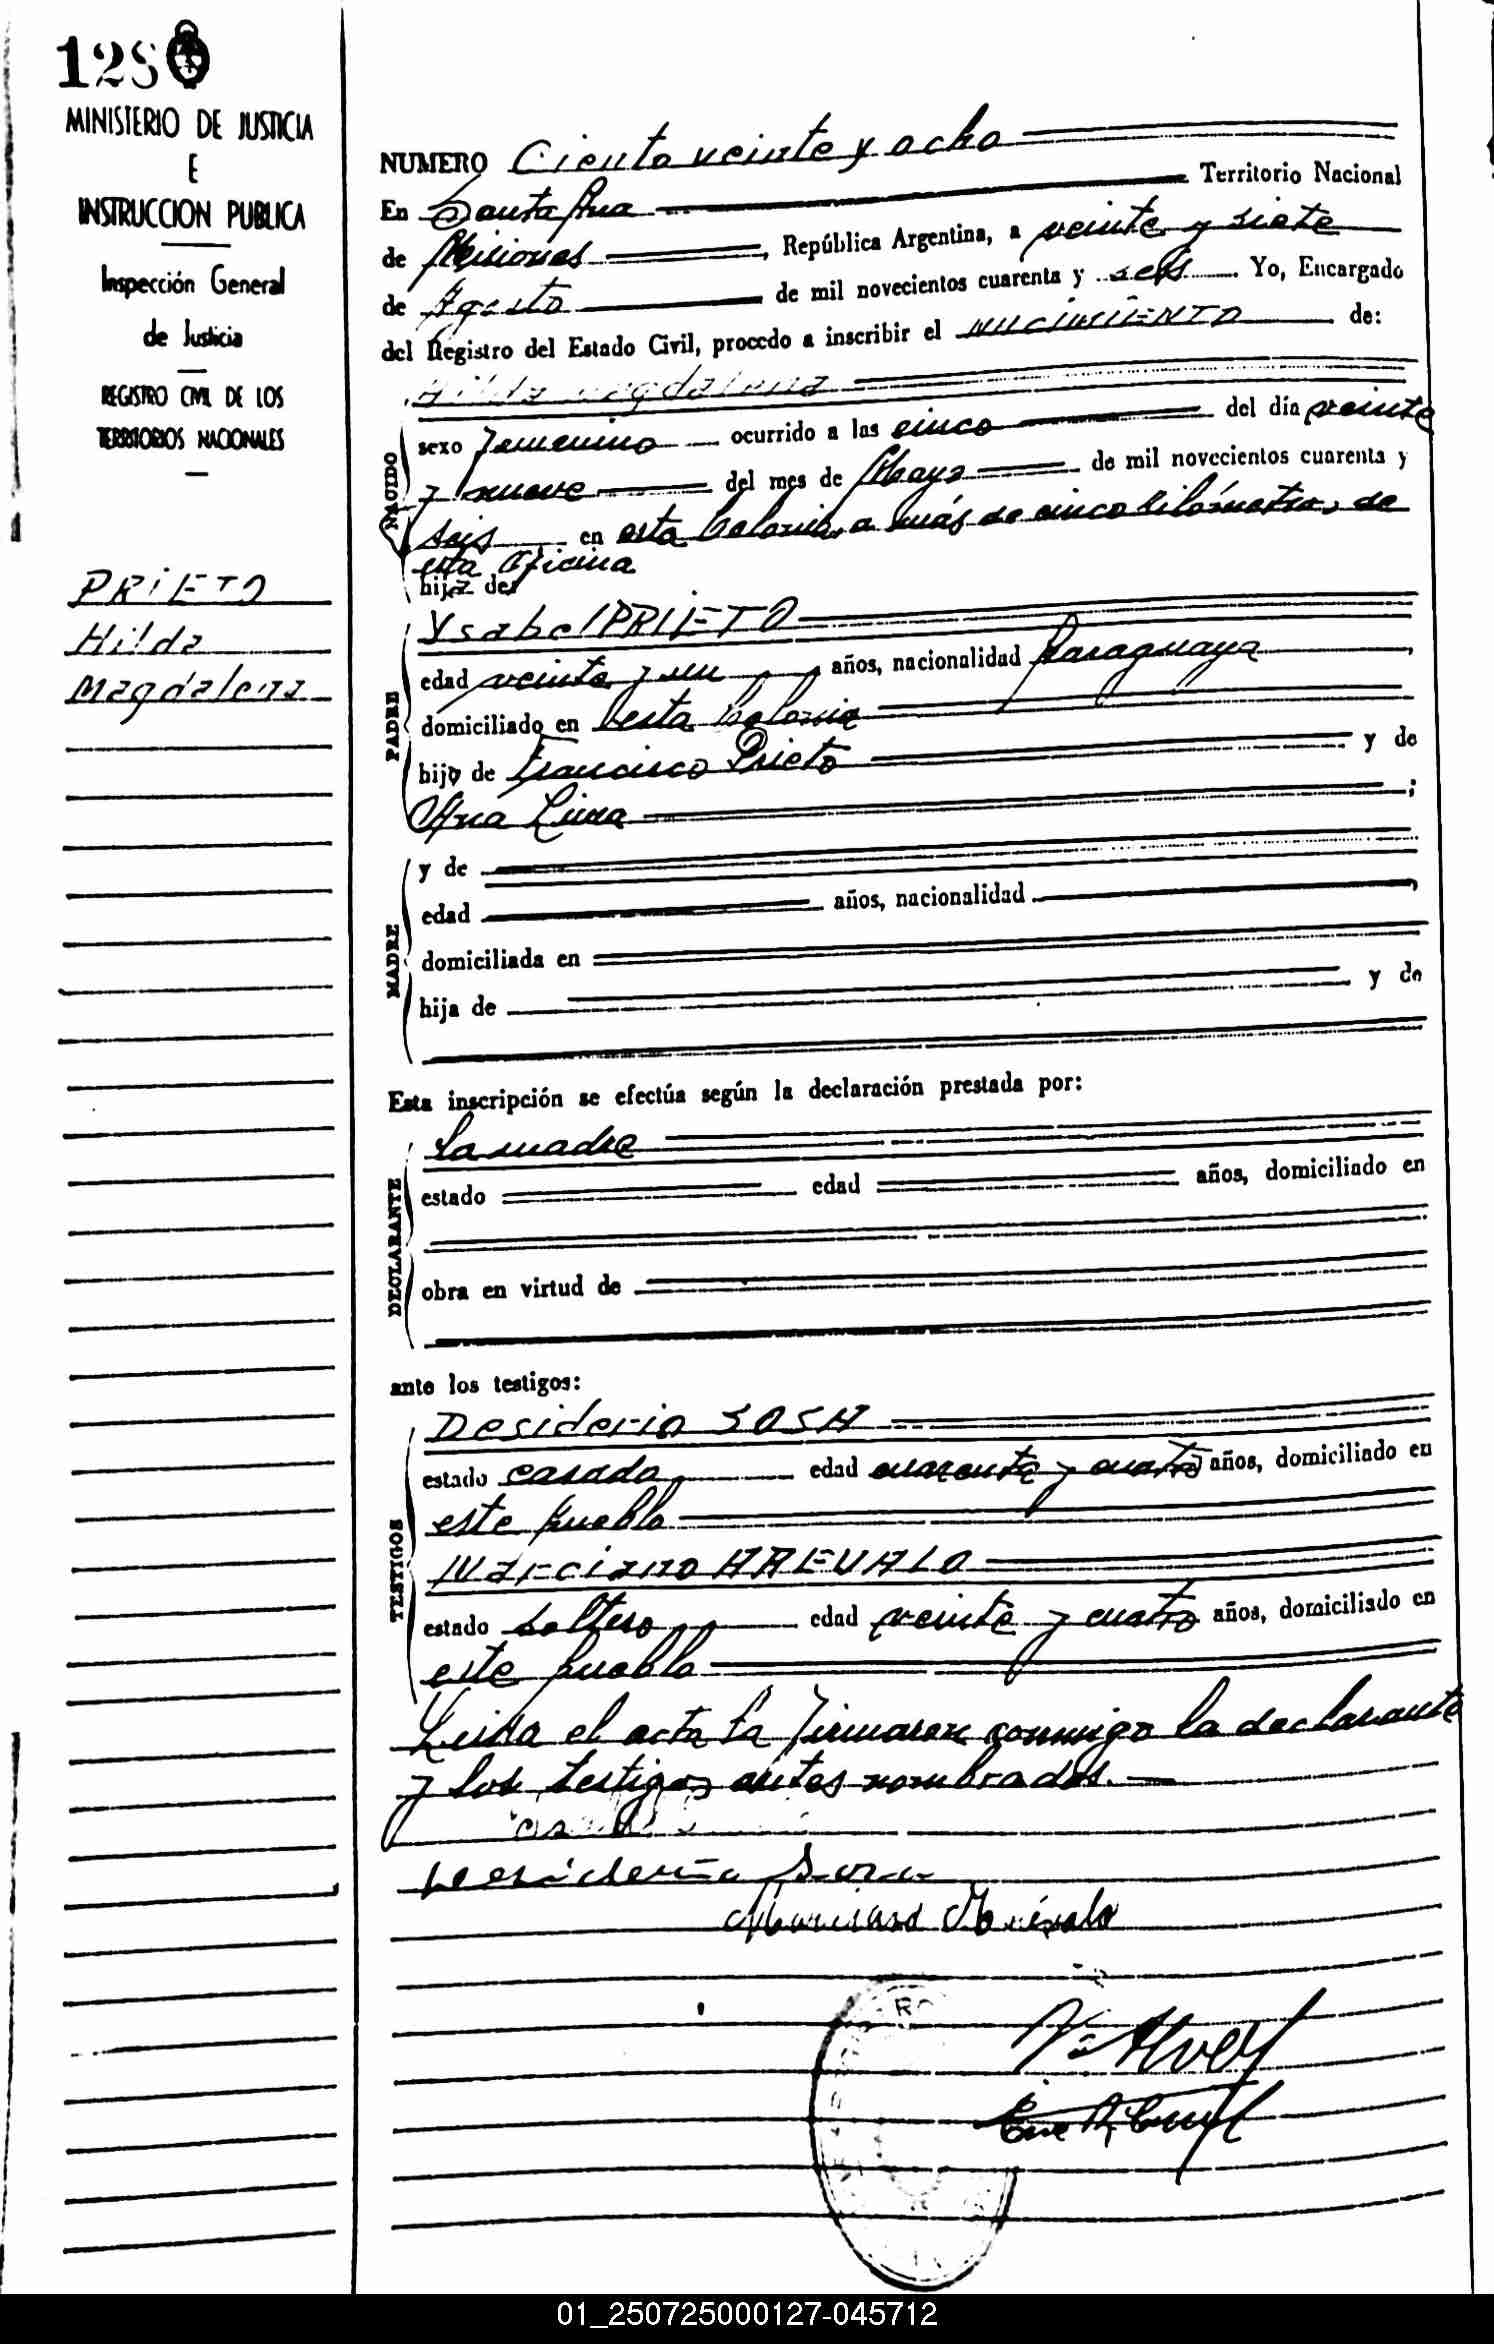 128
MINISTERIO DE JUSTICIA
E
INSTRUCCION PUBLICA
Inspección General
de Justicia
REGISTRO CIVIL DE LOS
TERRITORIOS NACIONALES
PRIETO
Hilda
Magdalena
NUMERO Ciento veinte y ocho
En Santa Ana Territorio Nacional
de Misiones, República Argentina, a veinte y siete
de Agosto de mil novecientos cuarenta y seis. Yo, Encargado
del Registro del Estado Civil, procedo a inscribir el NACIMIENTO de:
Hilda Magdalena
NACIDO
sexo femenino ocurrido a las cinco del día veinte
y nueve del mes de Mayo de mil novecientos cuarenta y
seis en esta Colonia, a más de cinco kilómetros de
esta Oficina
hija de:
PADRE
Ysabel PRIETO
edad veinte y un años, nacionalidad Paraguaya,
domiciliado en esta Colonia
hijo de Francisco Prieto y de
Ana Luna;
MADRE
y de
edad años, nacionalidad
domiciliada en
hija de y de
Esta inscripción se efectúa según la declaración prestada por:
DECLARANTE
La madre
estado edad años, domiciliado en
obra en virtud de
ante los testigos:
TESTIGOS
Desiderio SOSA
estado casado edad cuarenta y cuatro años, domiciliado en
este pueblo
Marciano AREVALO
estado soltero edad veinte y cuatro años, domiciliado en
este pueblo
Leida el acta la firmaron conmigo la declarante
y los testigos antes nombrados.
Desiderio Sosa
Marciano Arévalo
01_250725000127-045712